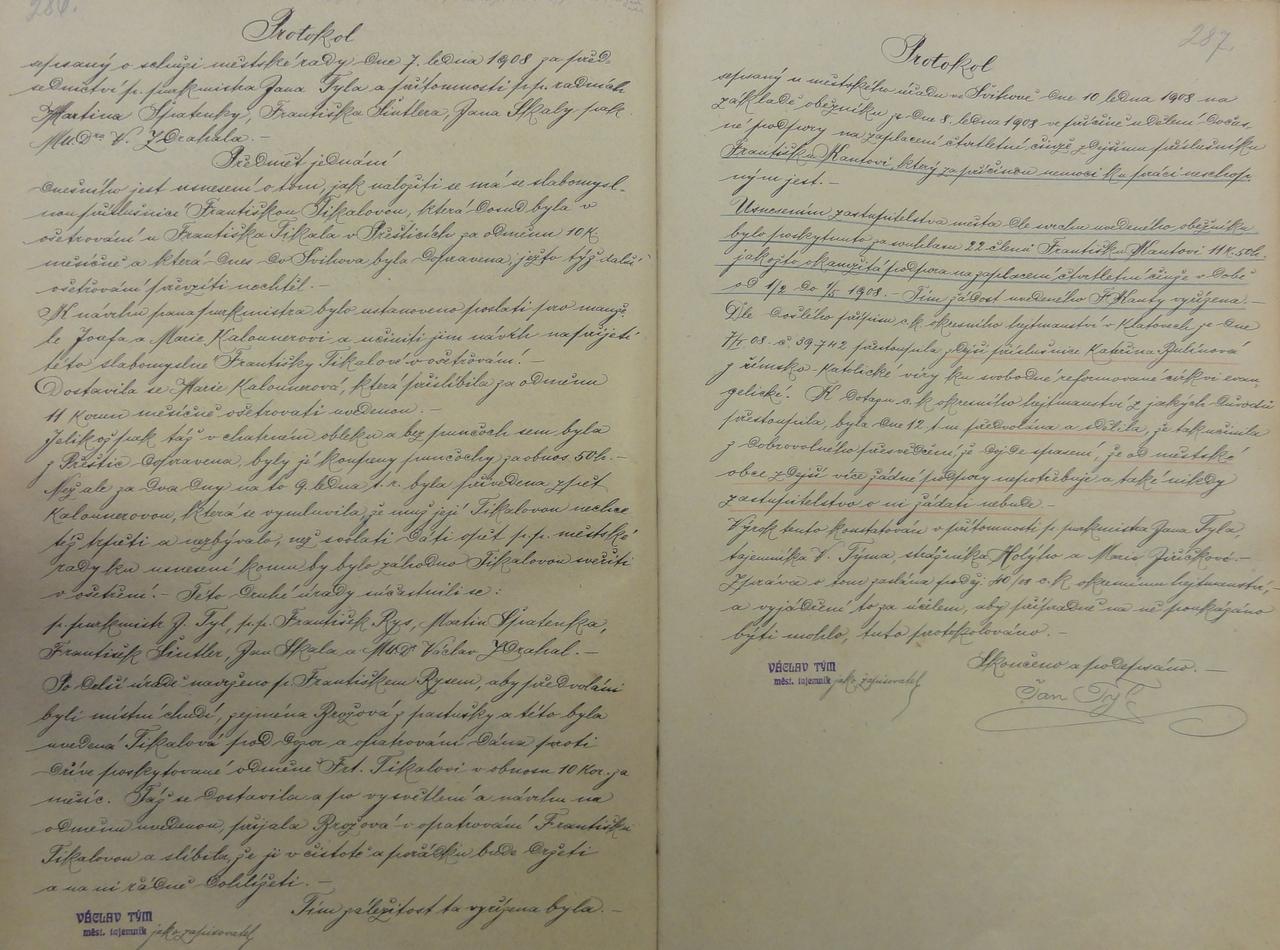 286.
Protokol
sepsaný o schůzi městské rady dne 7. ledna 1908 za před-
sednictví p. purkmistra Jana Tyla a přítomnosti p.p. radních
Martina Špatenky, Františka Šintlera, Jana Skaly pak
MUDra V. Zdrahala. –
Předmět jednání
dnešního jest usnesení o tom, jak naložiti se má se slabomysl-
nou příslušnicí Františkou Tikalovou, která dosud byla v
ošetřování u Františka Tikala v Přešticích za odměnu 10 K
měsíčně a která dnes do Švihova byla dopravena, ježto týž další
ošetřování převzíti nechtěl. –
K návrhu pana purkmistra bylo ustanoveno poslati pro manže-
le Josefa a Marii Kalounerovi a učiniti jim návrh na přijetí
této slabomyslné Františky Tikalové v ošetřování. –
Dostavila se Marie Kalounerová, která přislíbila za odměnu
11 korun měsíčně ošetřovati uvedenou. –
Jelikož pak táž v chatrném obleku a bez punčoch sem byla
z Přeštic dopravena, byly jí koupeny punčochy za obnos 50 h. –
Než ale za dva dny na to 9. ledna t. r. byla přivedena zpět
Kalounerovou, která se vymluvila, že muž její Tikalovou nechce
též trpěti a nezbývalo, než svolati dáti opět p.p. městské
rady ku usnesení komu by bylo záhodno Tikalovou svěřiti
v ošetření. – Této druhé úrady súčastnili se:
p. purkmistr J. Tyl, p.p. František Rys, Martin Špatenka,
František Šintler, Jan Skala a MUDr Václav Zdrahal. –
Po delší úradě navrženo p. Františkem Rysem, aby předvoláni
byli místní chudí, zejména Brožová z pastušky a této byla
uvedená Tikalová pod dozor a opatrování dána proti
dříve poskytované odměně Frt. Tikalovi v obnosu 10 Kor. za
měsíc. Táž se dostavila a po vysvětlení a návrhu na
odměnu uvedenou, přijala Brožová v opatrování Františku
Tikalovou a slíbila, že ji v čistotě a pořádku bude držeti
a na ni řádně dohlížeti. –
Tím záležitost ta vyřízena byla. –
VÁCLAV TÝM
měst. tajemník jako zapisovatel
287.
Protokol
sepsaný u městského úřadu ve Švihově dne 10 ledna 1908 na
základě oběžníku ze dne 8. ledna 1908 ve příčině udělení dočas-
né podpory na zaplacení čtvrtletní činže zdejšímu příslušníku
Františku Kantovi, který za příčinou nemoci ku práci neschop-
ným jest. –
Usnesením zastupitelstva města dle svrchu uvedeného oběžníku
bylo poskytnuto za souhlasu 22 členů Františku Kantovi 11 K. 50 h.
jakožto okamžitá podpora na zaplacení čtvrtletní činže v době
od 1/2 do 1/5 1908. – Tím žádost uvedeného F. Kanty vyřízena. –
Dle došlého přípisu c.k. okresního hejtmanství v Klatovech ze dne
7/1 08 č 39.742 přestoupila zdejší příslušnice Kateřina Bulínová
z římsko-katolické víry ku svobodné reformované církvi evan-
gelické. K dotazu c.k. okresního hejtmanství z jakých důvodů
přestoupila, byla dne 12 t.m předvolána a sdělila, že tak učinila
z dobrovolného přesvědčení, že dojde spasení, že od městské
obce zdejší více žádné podpory nepotřebuje a také nikdy
zastupitelstvo o ni žádati nebude. –
Výrok tento konstatován v přítomnosti p. purkmistra Jana Tyla,
tajemníka V. Týma, strážníka Holýho a Marie Jiřičkové. –
Zpráva o tom zaslána pod čj. 40/08 c.k. okresnímu hejtmanství,
a vyjádření to za účelem, aby případně na ně poukázáno
býti mohlo, tuto protokolováno. –
Skončeno a podepsáno. –
VÁCLAV TÝM
měst. tajemník jako zapisovatel
Jan Tyl